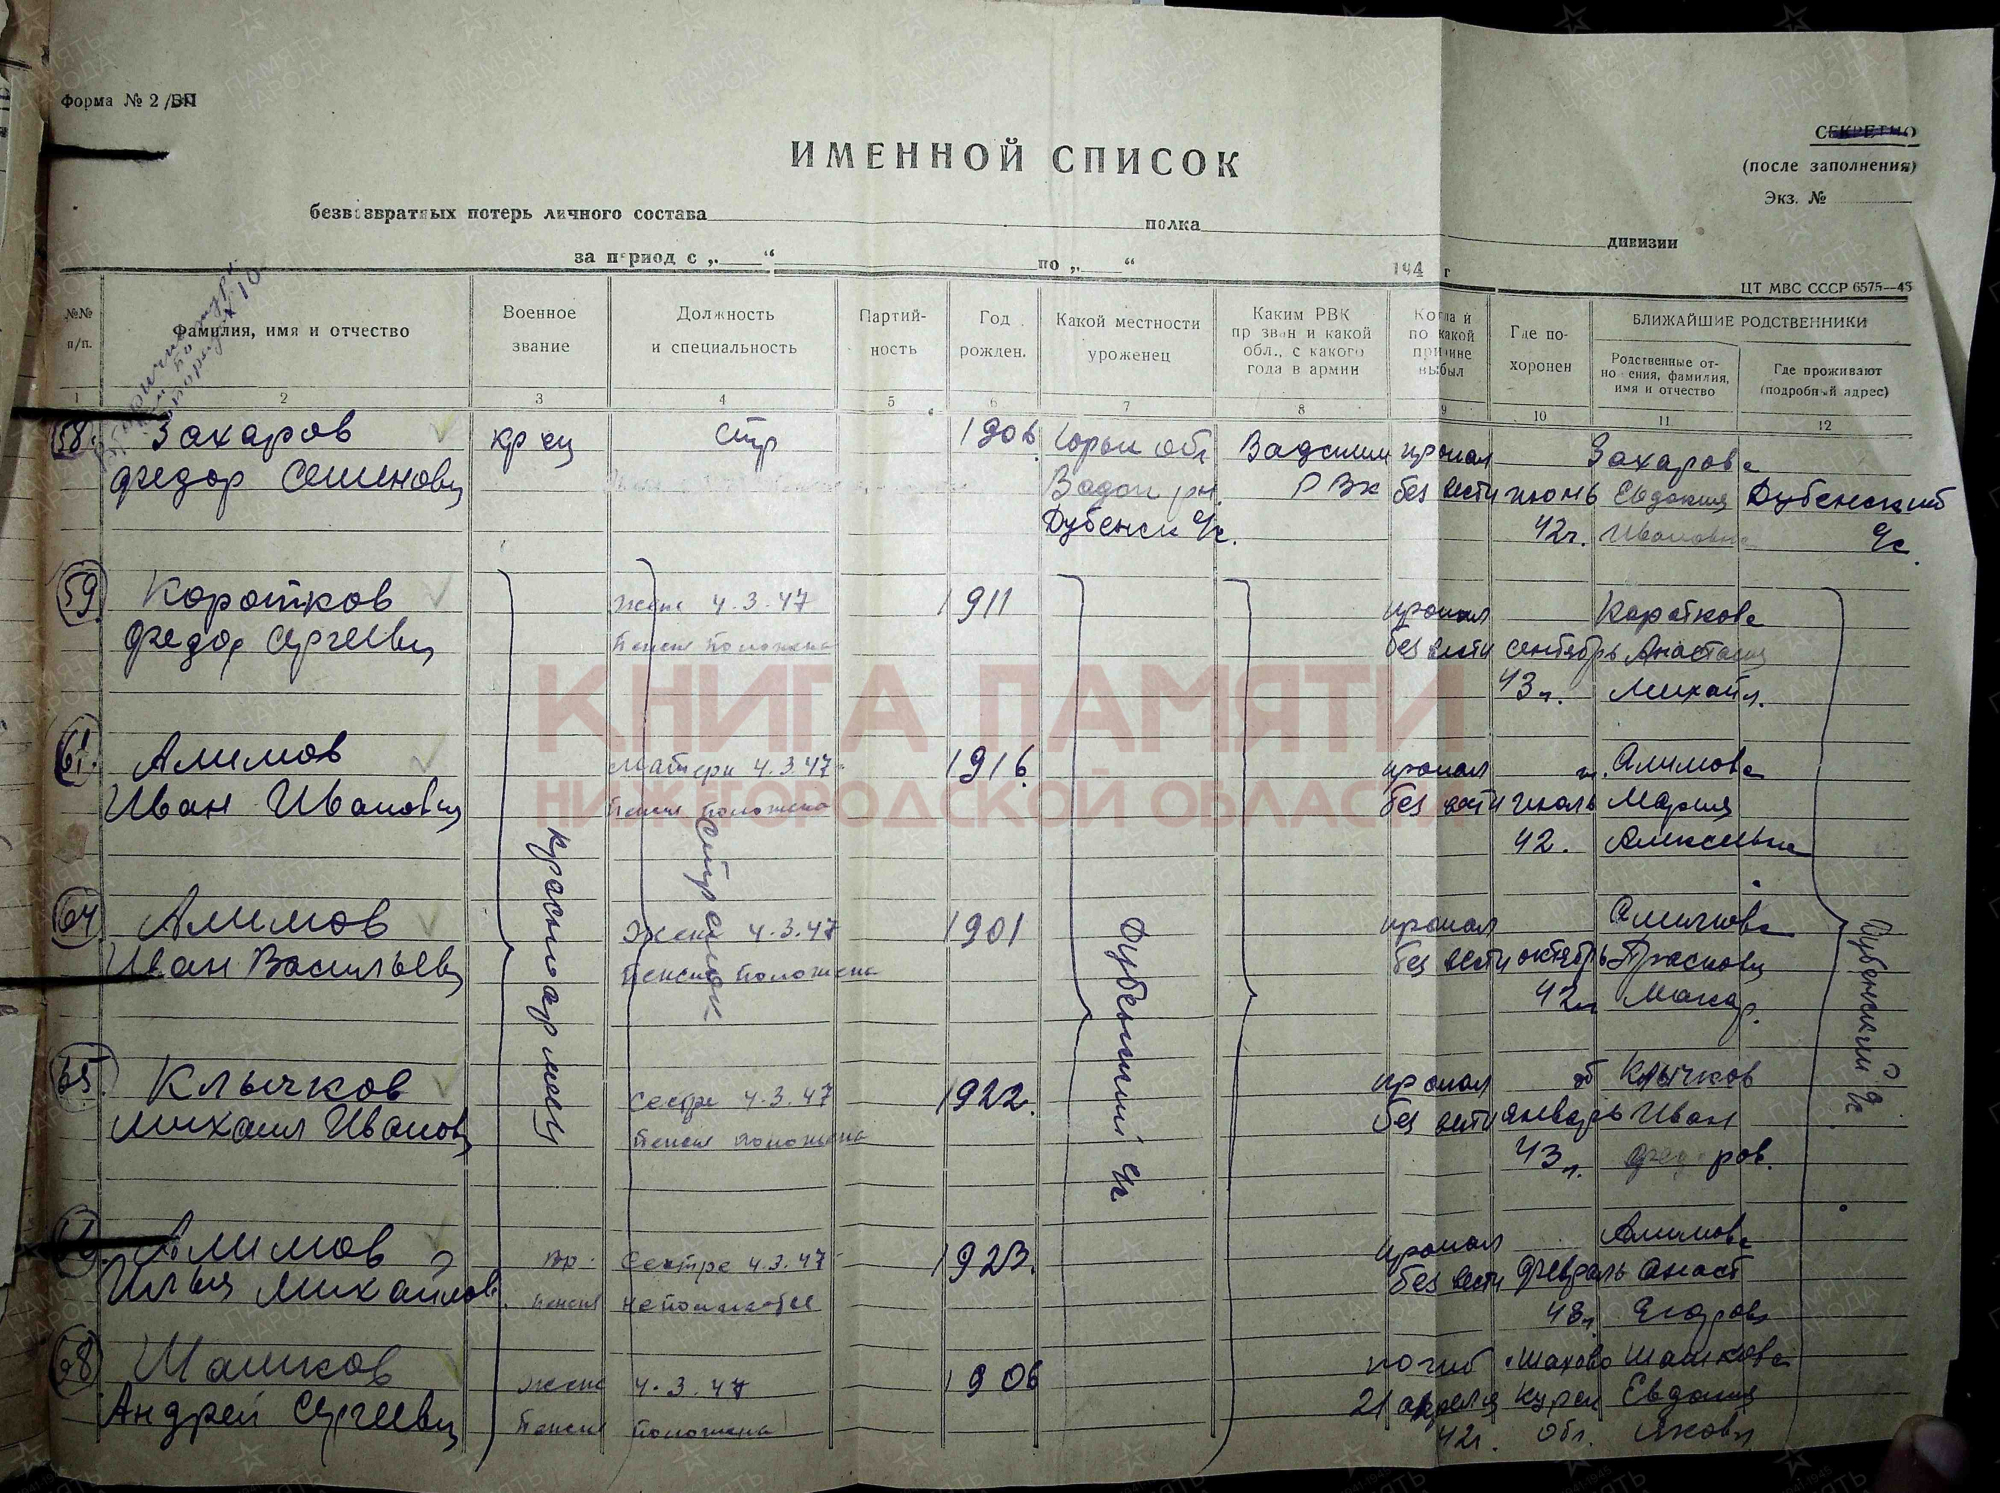 Форма № 2/БП
СЕКРЕТНО
(после заполнения)
Экз. №
ИМЕННОЙ СПИСОК
безвозвратных потерь личного состава полка дивизии
за период с „ “ по „ “ 194 г
ЦТ МВС СССР 6575—45
№№ п/п.
Фамилия, имя и отчество
Военное звание
Должность и специальность
Партий- ность
Год рожден.
Какой местности уроженец
Каким РВК призван и какой обл., с какого года в армии
Когда и по какой причине выбыл
Где по- хоронен
БЛИЖАЙШИЕ РОДСТВЕННИКИ
Родственные от- ношения, фамилия, имя и отчество
Где проживают (подробный адрес)
1 2 3 4 5 6 7 8 9 10 11 12
58. Захаров кр ец стр 1906 Горьк обл Вадским пропал Захарова
Федор Семенович Вадск рн. РВК без вести июнь Евдокия Дубенский
Дубенск с/с. 42г. Ивановна с/с
59 Коротков жене 4.3.47 1911 пропал Короткова
Федор Сергеевич Пенсия положена без вести сентябрь Анастасия
43г. Михайл.
61. Алимов Матери 4.3.47 1916 пропал м. Алимова
Иван Иванович Пенсия положена без вести июль Мария
42. Алексеевна
64 Алимов Жене 4.3.47 1901 пропал Алимова
Иван Васильевич Пенсия положена без вести октябрь Прасковья
42г Макар.
красноармеец
стрелок
Дубенский с/с.
Дубенский с/с.
65. Клычков Сестре 4.3.47 1922. пропал от Клычков
Михаил Иванович Пенсия положена без вести январь Иван
43г. Федоров.
Алимов Сестре 4.3.47 1923. пропал Алимова
Илья Михайлов. Пенсия без вести февраль Анаст
43г. Егоровн
68 Шашков жене 4.3.47 1906 погиб Шахово Шашкова
Андрей Сергеевич Пенсия положена 21 апреля Курск Евдокия
42г. Обл. Яковл
КНИГА ПАМЯТИ
НИЖЕГОРОДСКОЙ ОБЛАСТИ